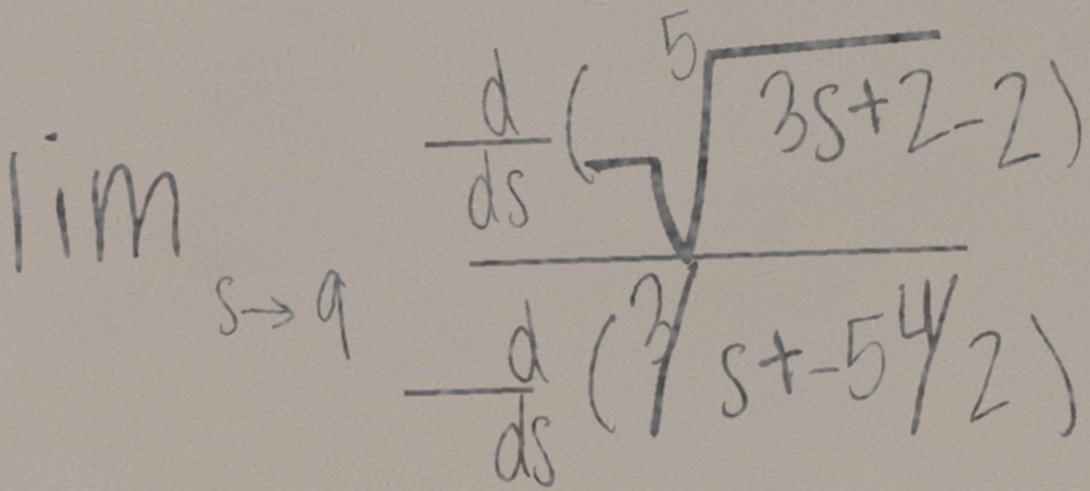 lim_{s→9} \frac{\frac{d}{ds}(\sqrt[5]{3s+2}-2)}{\frac{d}{ds}(3/s+-5 4/2)}